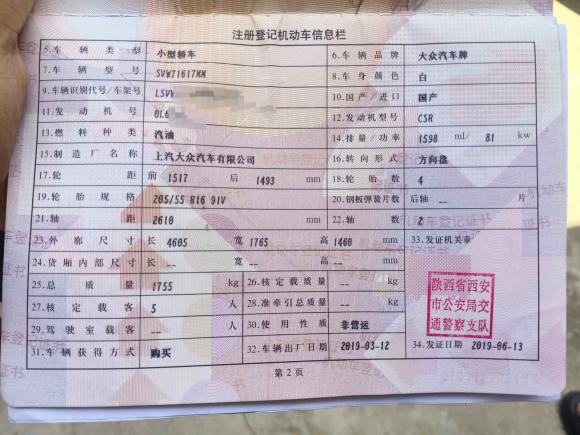 注册登记机动车信息栏
5.车辆类型 小型轿车 6.车辆品牌 大众汽车牌
7.车辆型号 SVW71617MM 8.车身颜色 白
9.车辆识别代号/车架号 LSV 10.国产/进口 国产
11.发动机号 0L6 12.发动机型号 CSR
13.燃料种类 汽油 14.排量/功率 1598 ml/ 81 kw
15.制造厂名称 上汽大众汽车有限公司 16.转向形式 方向盘
17.轮距 前 1517 后 1493 mm 18.轮胎数 4
19.轮胎规格 205/55 R16 91V 20.钢板弹簧片数 后轴 -- 片
21.轴距 2610 mm 22.轴数 2
23.外廓尺寸 长 4605 宽 1765 高 1460 mm 33.发证机关章
24.货厢内部尺寸 长 -- 宽 -- 高 -- mm
25.总质量 1755 kg 26.核定载质量 -- kg
27.核定载客 5 人 28.准牵引总质量 -- kg
29.驾驶室载客 -- 人 30.使用性质 非营运
陕西省西安
市公安局交
通警察支队
31.车辆获得方式 购买 32.车辆出厂日期 2019-03-12 34.发证日期 2019-06-13
第2页